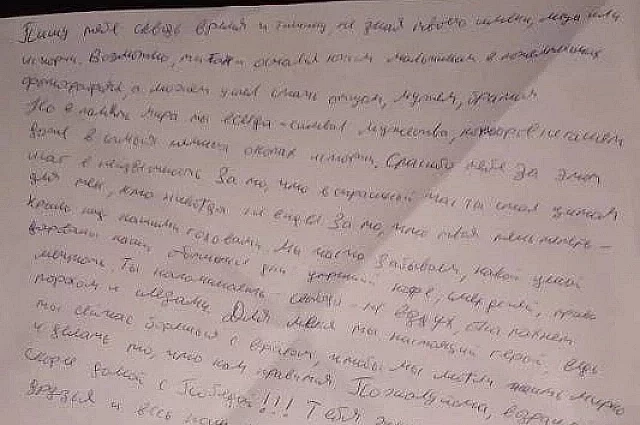 Пишу тебе сквозь время и тишину, не зная твоего имени, лица или
истории. Возможно, ты так и остался юным мальчишкой в пожелтевших
фотографиях, а может успел стать отцом, мужем, братом
Но в память мира ты всегда - символ мужества, которое не гаснет
даже в самых темных окопах истории. Спасибо тебе за этот
шаг в неизвестность За то, что в страшный час ты стал щитом
для тех, кто никогда не видел За то, что твоя тень теперь -
крыша над нашими головами. Мы часто забываем, какой ценой
куплены наши обычные дни утренний кофе, смех детей, право
мечтать. Ты напоминаешь свобода - не воздух, она пахнет
порохом и слезами. Для меня ты настоящий герой, ведь
ты сейчас борешься с врагом, чтобы мы могли жить мирно
и делать то, что нам нравится Пожалуйста,
скорее домой с Победой!!! Тебя
друзья и весь